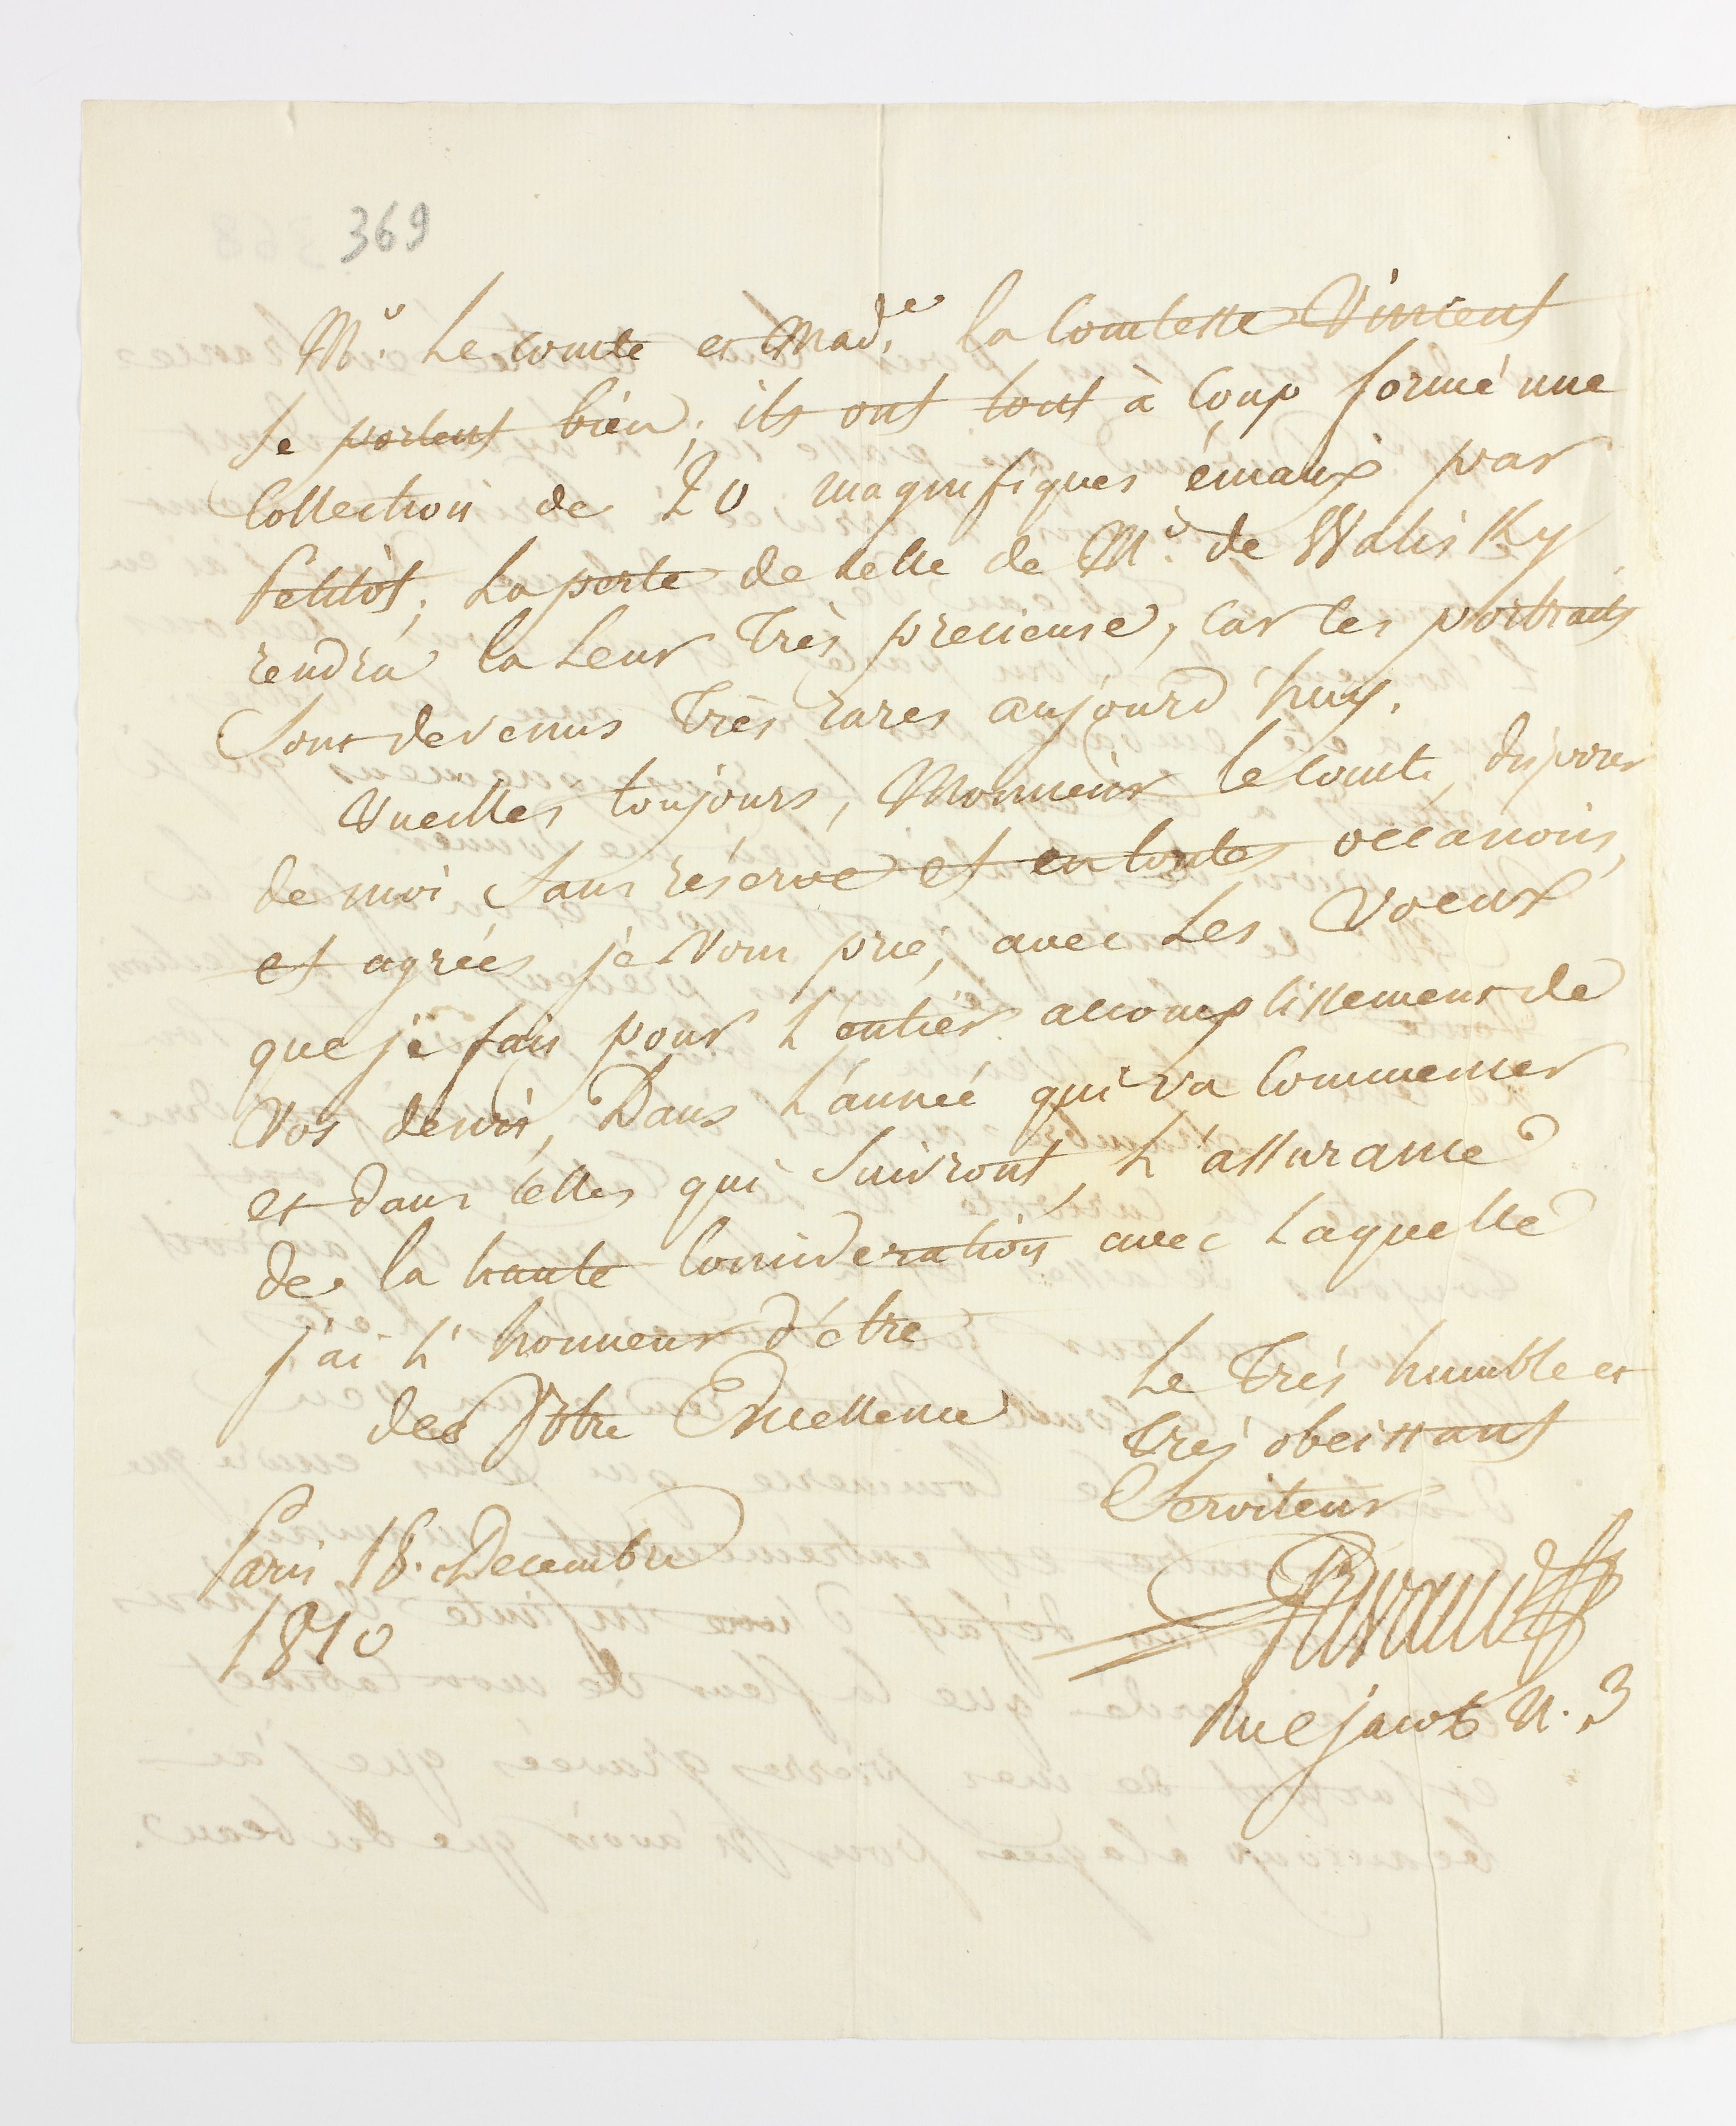 369
Mr. Le comte et Made. la Comtesse Vincent
se portent bien; ils ont tout à Coup formé une
Collection de 20 magnifiques émaux par
Petitôt; La perte de Celle de Mr. de Walis Ky
rendra la Leur Très precieuse, Car ces portraits
Sont devenus Très rares aujourd'huy.
Vueilles toujours, Monsieur le Comte, disposer
de moi Sans réserve et en toutes occasions,
et agréés je Vous prie, avec Les Voeux
que je fais pour L'entier accomplissement de
Vos desirs, Dans L'année qui va Commencer
et dans Celles qui Suivront, L'assurance
de la haute Consideration avec Laquelle
j'ai L'honneur d'être
de Votre Excellence
Le Trés humble et
Trés obeissant
Serviteur
Paris 18. Decembre
1810
Durand
Rue jacob N. 3